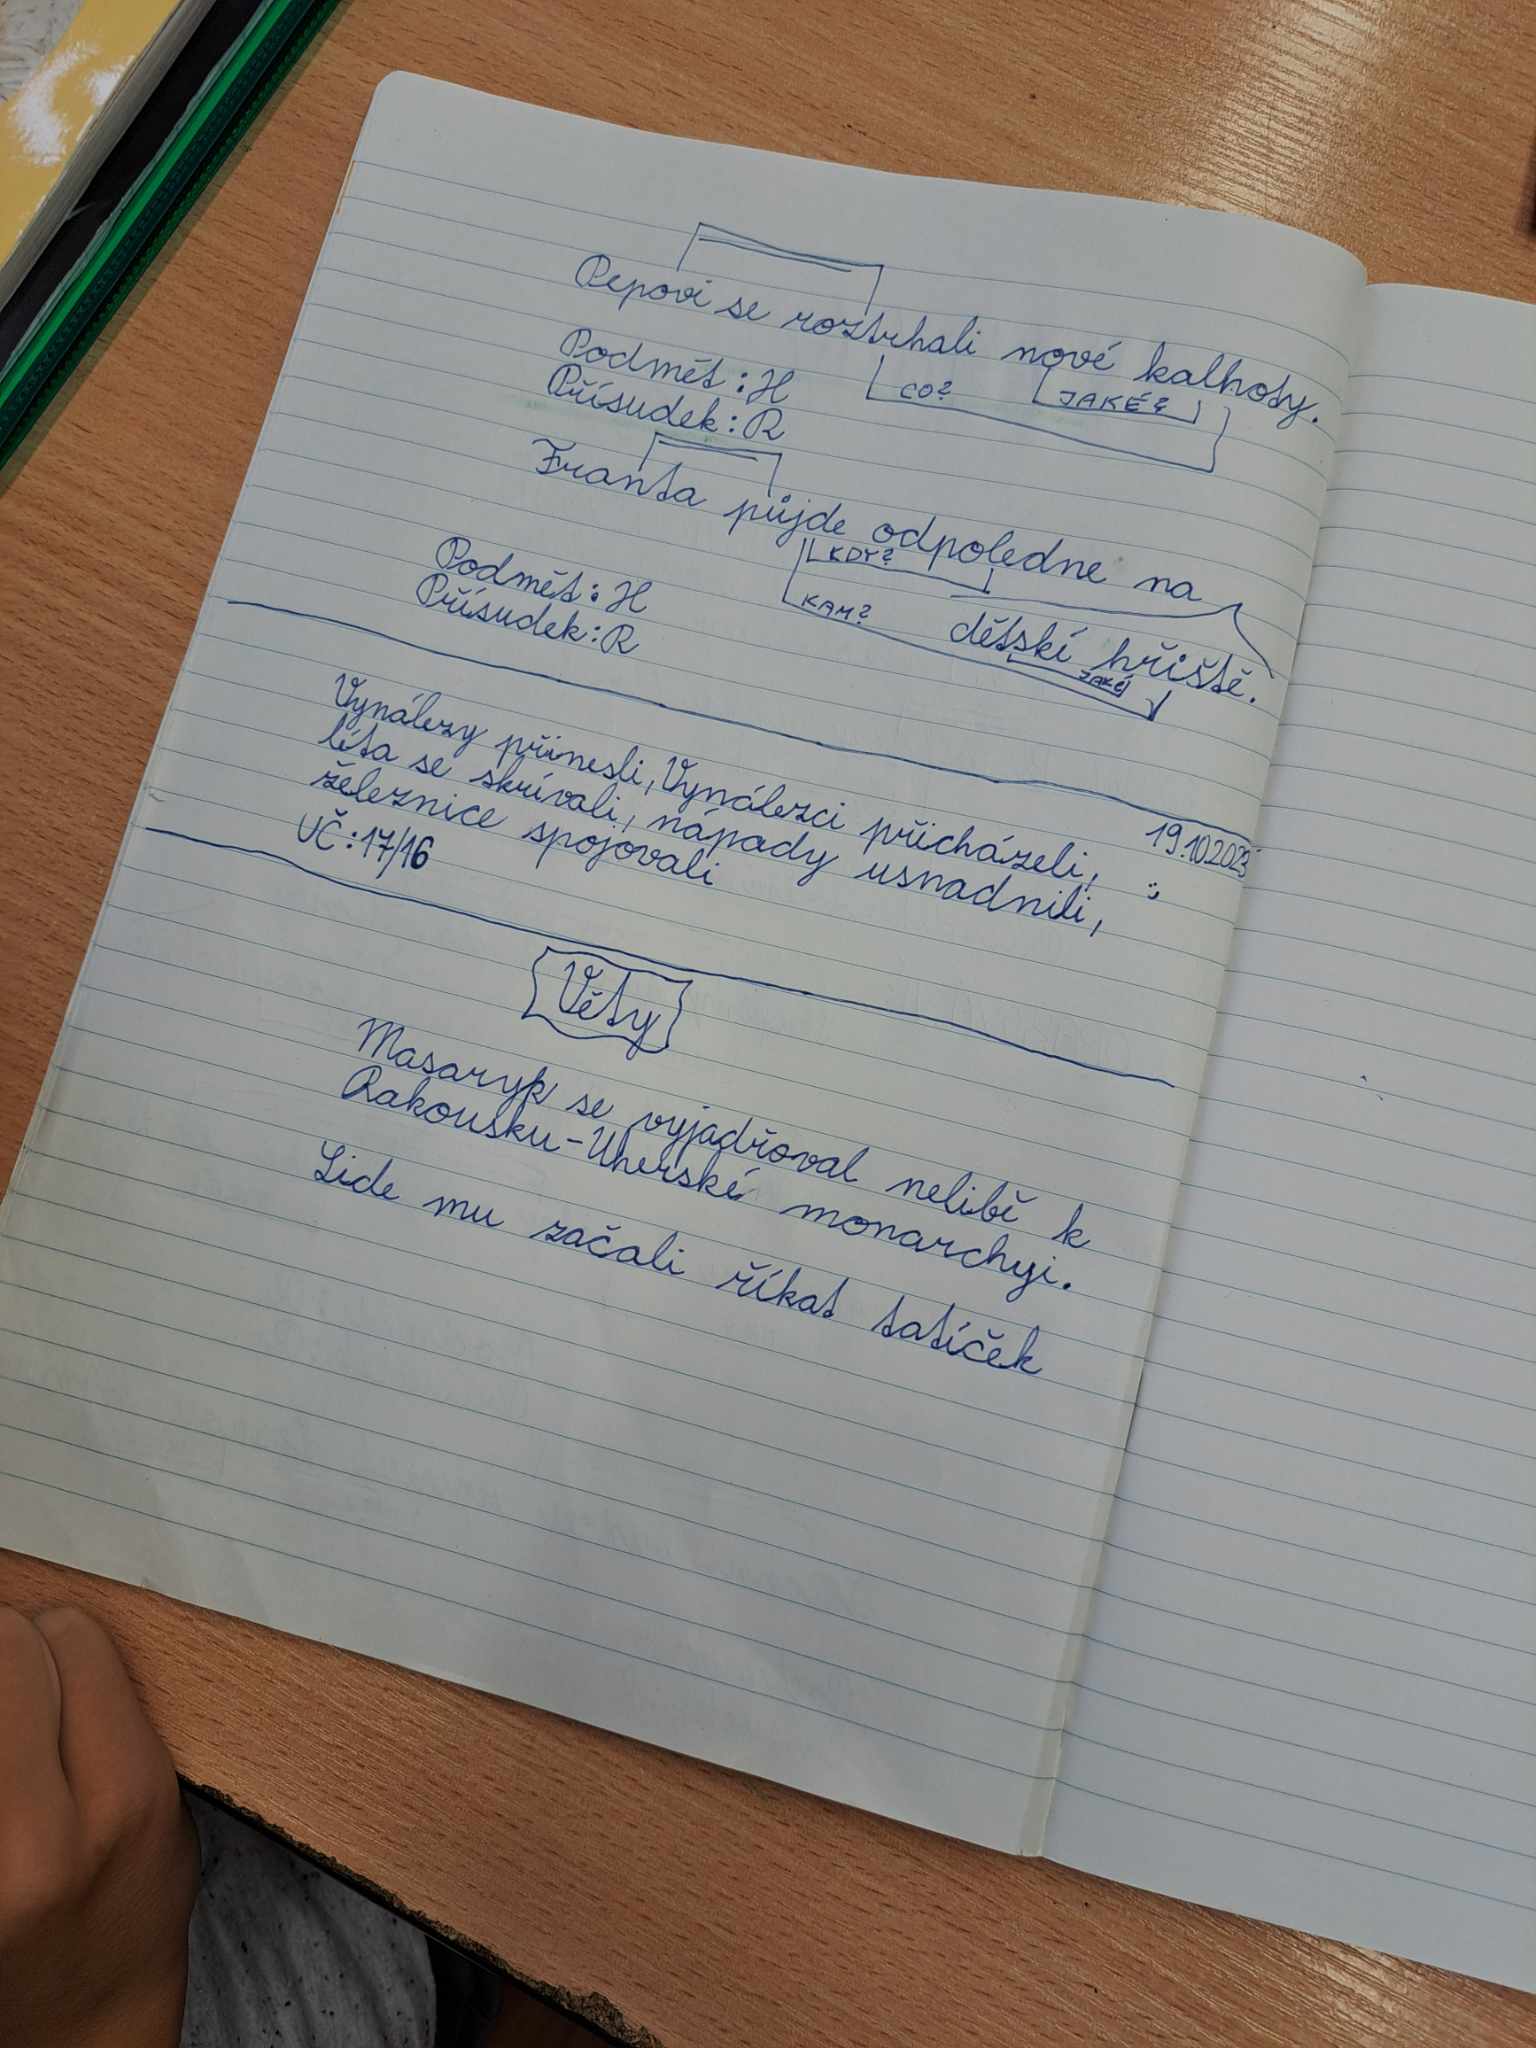 Pepovi se roztrhali nové kalhoty.
CO?
JAKÉ?
Podmět: H
Přísudek: R
Franta půjde odpoledne na
KDY?
KAM?
dětskí hřiště.
JAKÉ
Podmět: H
Přísudek: R
19.10.2023
Vynálezy přinesli, Vynálezci přicházeli,
léta se skrívali, nápady usnadnili,
železnice spojovali
UČ: 17/16
Věty
Masaryk se vyjadřoval nelibě k
Rakousku-Uherské monarchyi.
Lide mu začali říkat tatíček